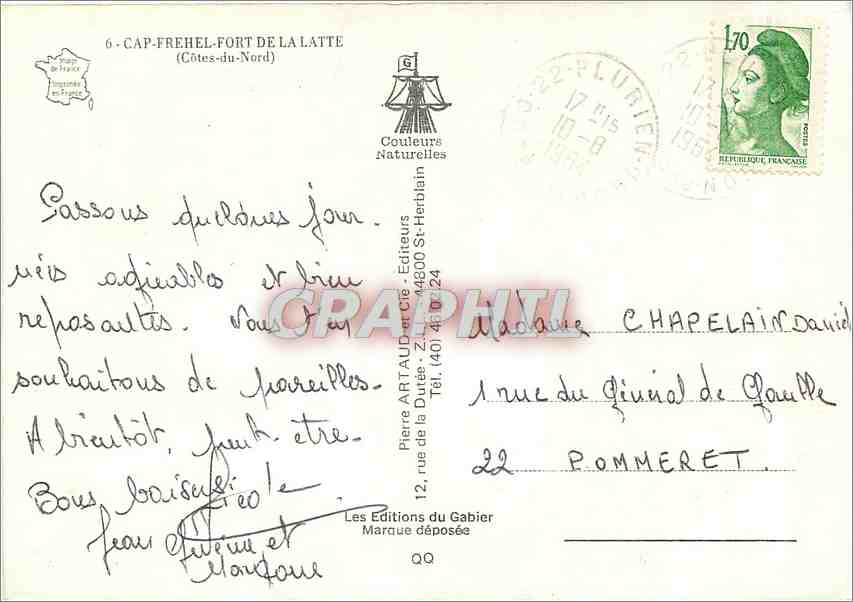 6 - CAP-FREHEL-FORT DE LA LATTE
(Côtes-du-Nord)
Image
de France
Imprimée
en France
G
Couleurs
Naturelles
22-PLURIEN
17 H 15
10-8
1,70
POSTES
REPUBLIQUE FRANÇAISE
Passons quelques jour-
nées agréables et bien
reposantes. Vous en
souhaitons de pareilles.
A bientôt, peut-être.
Bons baisers.
Nicole
Jean et
Pierre ARTAUD et Cie - Editeurs
12, rue de la Dutée - Z.I. - 44800 St-Herblain
Tél. (40) 46 02 24
CPAPHIL
Madame CHAPELAIN Daniel
1 rue du Général de Gaulle
22 POMMERET.
Les Editions du Gabier
Marque déposée
QQ